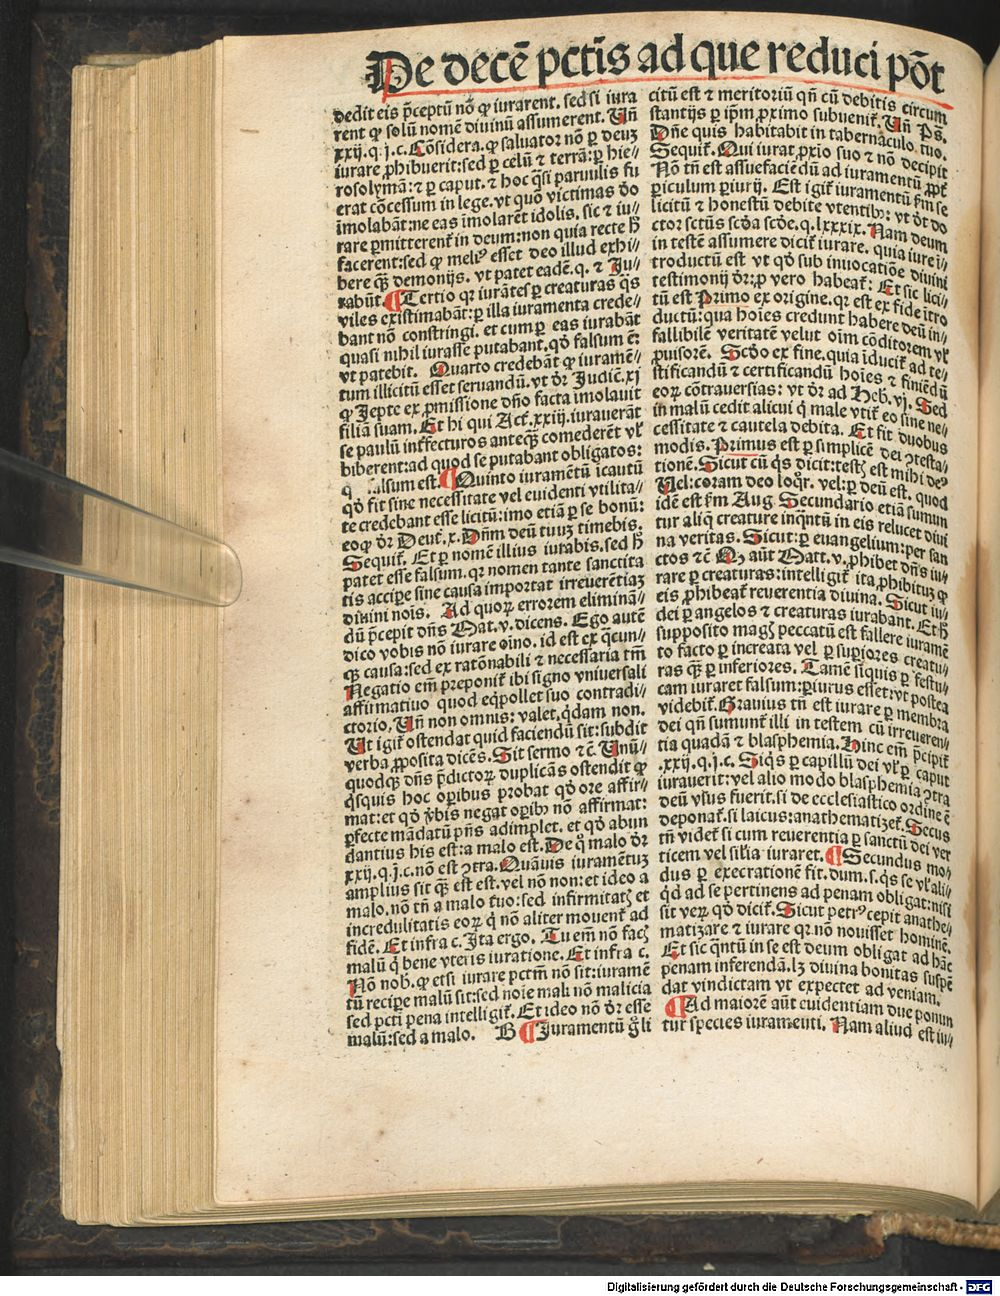 De decē pctīs ad que reduci pōt
dedit eis p̄ceptū nō ꝙ iurarent. sed si iura
rent ꝙ solū nomē diuinū assumerent. Un̄
xxij. q. j. c. Cōsidera. ꝙ saluator nō ꝑ deuꝫ
iurare ꝓhibuerit: sed ꝑ celū ⁊ terrā: ꝑ hie⸗
rosolymā: ⁊ ꝑ caput. ⁊ hoc q̄si paruulis fu
erat cōcessum in lege. vt quō victimas dō
īmolabāt: ne eas īmolarēt idolis. sic ⁊ iu⸗
rare ꝑmitterent̄ in deum: non quia recte h̄
facerent: sed ꝙ meliꝰ esset deo illud exhi⸗
bere qꝫ̄ demonijs. vt patet eadē. q. ⁊ Iu⸗
rabūt. ¶ Tertio qꝛ iurātes ꝑ creaturas q̄s
viles existimabāt: ꝑ illa iuramenta crede⸗
bant nō constringi. et cum ꝑ eas iurabāt
quasi nihil iurasse putabant. qd̄ falsum ē:
vt patebit. Quarto credebāt ꝙ iuramē⸗
tum illicitū esset seruandū. vt dr̄ Judic̄. xj
ꝙ Iepte ex ꝓmissione dn̄o facta imolauit
filiā suam. Et hi qui Act̄. xxiij. iurauerāt
se paulū infecturos anteqꝫ̄ comederēt vl̓
biberent: ad quod se putabant obligatos:
q alsum est. ¶ Quinto iuramētū icautū
qd̄ fit sine necessitate vel euidenti vtilita⸗
te credebant esse licitū: imo etiā ꝑ se bonū:
eo ꝙ dr̄ Deut̄. x. Dn̄m deū tuuꝫ timebis.
Sequit̄. Et ꝑ nomē illius iurabis. sed h̄
patet esse falsum. qꝛ nomen tante sanctita
tis accipe sine causa importat irreuerētiaꝫ
diuini nois̄. Ad quoꝝ errorem eliminā⸗
dū p̄cepit dn̄s Mat. v. dicens. Ego autē
dico vobis nō iurare oīno. id est ex q̄cun⸗
qꝫ causa: sed ex ratōnabili ⁊ necessaria tm̄
Negatio em̄ preponit̄ ibi signo vniuersali
affirmatiuo quod eqͥpollet suo contradi⸗
ctorio. Un̄ non omnis: valet. qͥdam non.
Ut igit̄ ostendat quid faciendū sit: subdit
verba ꝓposita dicēs. Sit sermo ⁊ c̄. Unū⸗
quodqꝫ dn̄s p̄dictoꝝ duplicās ostendit ꝙ
qͥsquis hoc oꝑibus probat qd̄ ore affir⸗
mat: et qd̄ v̓bis negat oꝑibꝫ nō affirmat:
ꝑfecte mādatū pn̄s adimplet. et qd̄ abun
dantius his est: a malo est. De qͦ malo dr̄
xxij. q. j. c. nō est ꝯtra. Quāuis iuramētuꝫ
amplius sit qꝫ̄ est est. vel nō non: et ideo a
malo. nō tn̄ a malo tuo: sed infirmitatꝭ et
incredulitatis eoꝝ qͥ nō aliter mouent̄ ad
fidē. Et infra c. Ita ergo. Tu em̄ nō facꝭ
malū qͥ bene vteris iuratione. Et infra c.
Nō nob̓. ꝙ etsi iurare pctm̄ nō sit: iuramē
tū recipe malū sit: sed noīe mali nō malicia
sed pcti pena intelligit̄. Et ideo nō dr̄ esse
malū: sed a malo. B ¶ Iuramentū gͦ li
citū est ⁊ meritoriū qn̄ cū debitis circum
stantijs ꝑ ip̄m ꝓximo subuenit̄. Un̄ Ps̄.
Dn̄e quis habitabit in tabernaculo tuo.
Sequit̄. Qui iurat ꝓxīo suo ⁊ nō decipit
Nō tn̄ est assuefaciēdū ad iuramentū ꝓpt̄
ꝑiculum ꝑiurij. Est igit̄ iuramentū ẜm se
licitū ⁊ honestū debite vtentibꝫ: vt dt̄ do
ctor sctūs scd̄a scd̄e. q. lxxxix. Nam deum
in testē assumere dicit̄ iurare. quia iure ī⸗
troductū est vt qd̄ sub inuocatiōe diuini
testimonij dr̄: ꝓ vero habeat̄: Et sic lici⸗
tū est Primo ex origine. qꝛ est ex fide ītro
ductū: qua hoīes credunt habere deū in⸗
fallibilē veritatē velut oīm cōditorem vl̓
ꝓuisorē. Scd̄o ex fine. quia īducit̄ ad te⸗
stificandū ⁊ certificandū hoīes ⁊ finiēdū
eoꝝ cōtrauersias: vt dr̄ ad Heb̄. vj. Sed
in malū cedit alicui qͥ male vtit̄ eo sine ne⸗
cessitate ⁊ cautela debita. Et fit duobus
modis. Primus est ꝑ simplicē dei ꝯtesta⸗
tionē. Sicut cū qͥs dicit: testꝭ est mihi deꝰ
Uel: coram deo loqͦr. vel: ꝑ deū est. quod
idē est ẜm Aug. Secundario etiā sumun
tur aliq̄ creature inqͣntū in eis relucet diui
na veritas. Sicut: ꝑ euangelium: per san
ctos ⁊ c̄. Q aūt Matt. v. ꝓhibet dn̄s iu⸗
rare ꝑ creaturas: intelligit̄ ita ꝓhibituꝫ ꝙ
eis ꝓhibeat̄ reuerentia diuina. Sicut iu⸗
dei ꝑ angelos ⁊ creaturas iurabant. Et h̄
supposito magꝭ peccatū est fallere iuramē
to facto ꝑ increata vel ꝑ suꝑiores creatu⸗
ras qꝫ̄ ꝑ inferiores. Tamē siquis ꝑ festu⸗
cam iuraret falsum: ꝑiurus esset: vt postea
videbit̄. Grauius tn̄ est iurare ꝑ membra
dei qn̄ sumunt̄ illi in testem cū irreueren⸗
tia quadā ⁊ blasphemia. Hinc em̄ p̄cipit̄
.xxij. q. j. c. Siqͥs ꝑ capillū dei vl̓ ꝑ caput
iurauerit: vel alio modo blasphemia ꝯtra
deū vsus fuerit. si de ecclesiastico ordine ē
deponat̄. si laicus: anathematizet̄. Secus
tn̄ videt̄ si cum reuerentia ꝑ sanctū dei ver
ticem vel sil̓ia iuraret. ¶ Secundus mo⸗
dus ꝑ execrationē fit. dum. s. qͥs se vl̓ ali⸗
qͥd ad se pertinens ad penam obligat: nisi
sit veꝝ qd̄ dicit̄. Sicut petrꝰ cepit anathe⸗
matizare ⁊ iurare qꝛ nō nouisset hominē.
Et sic qͣntū in se est deum obligat ad hāc
penam inferendā. lꝫ diuina bonitas suspē
dat vindictam vt expectet ad veniam.
¶ Ad maiorē aūt euidentiam due ponun
tur species iuramenti. Nam aliud est iu⸗
Digitalisierung gefördert durch die Deutsche Forschungsgemeinschaft - DFG